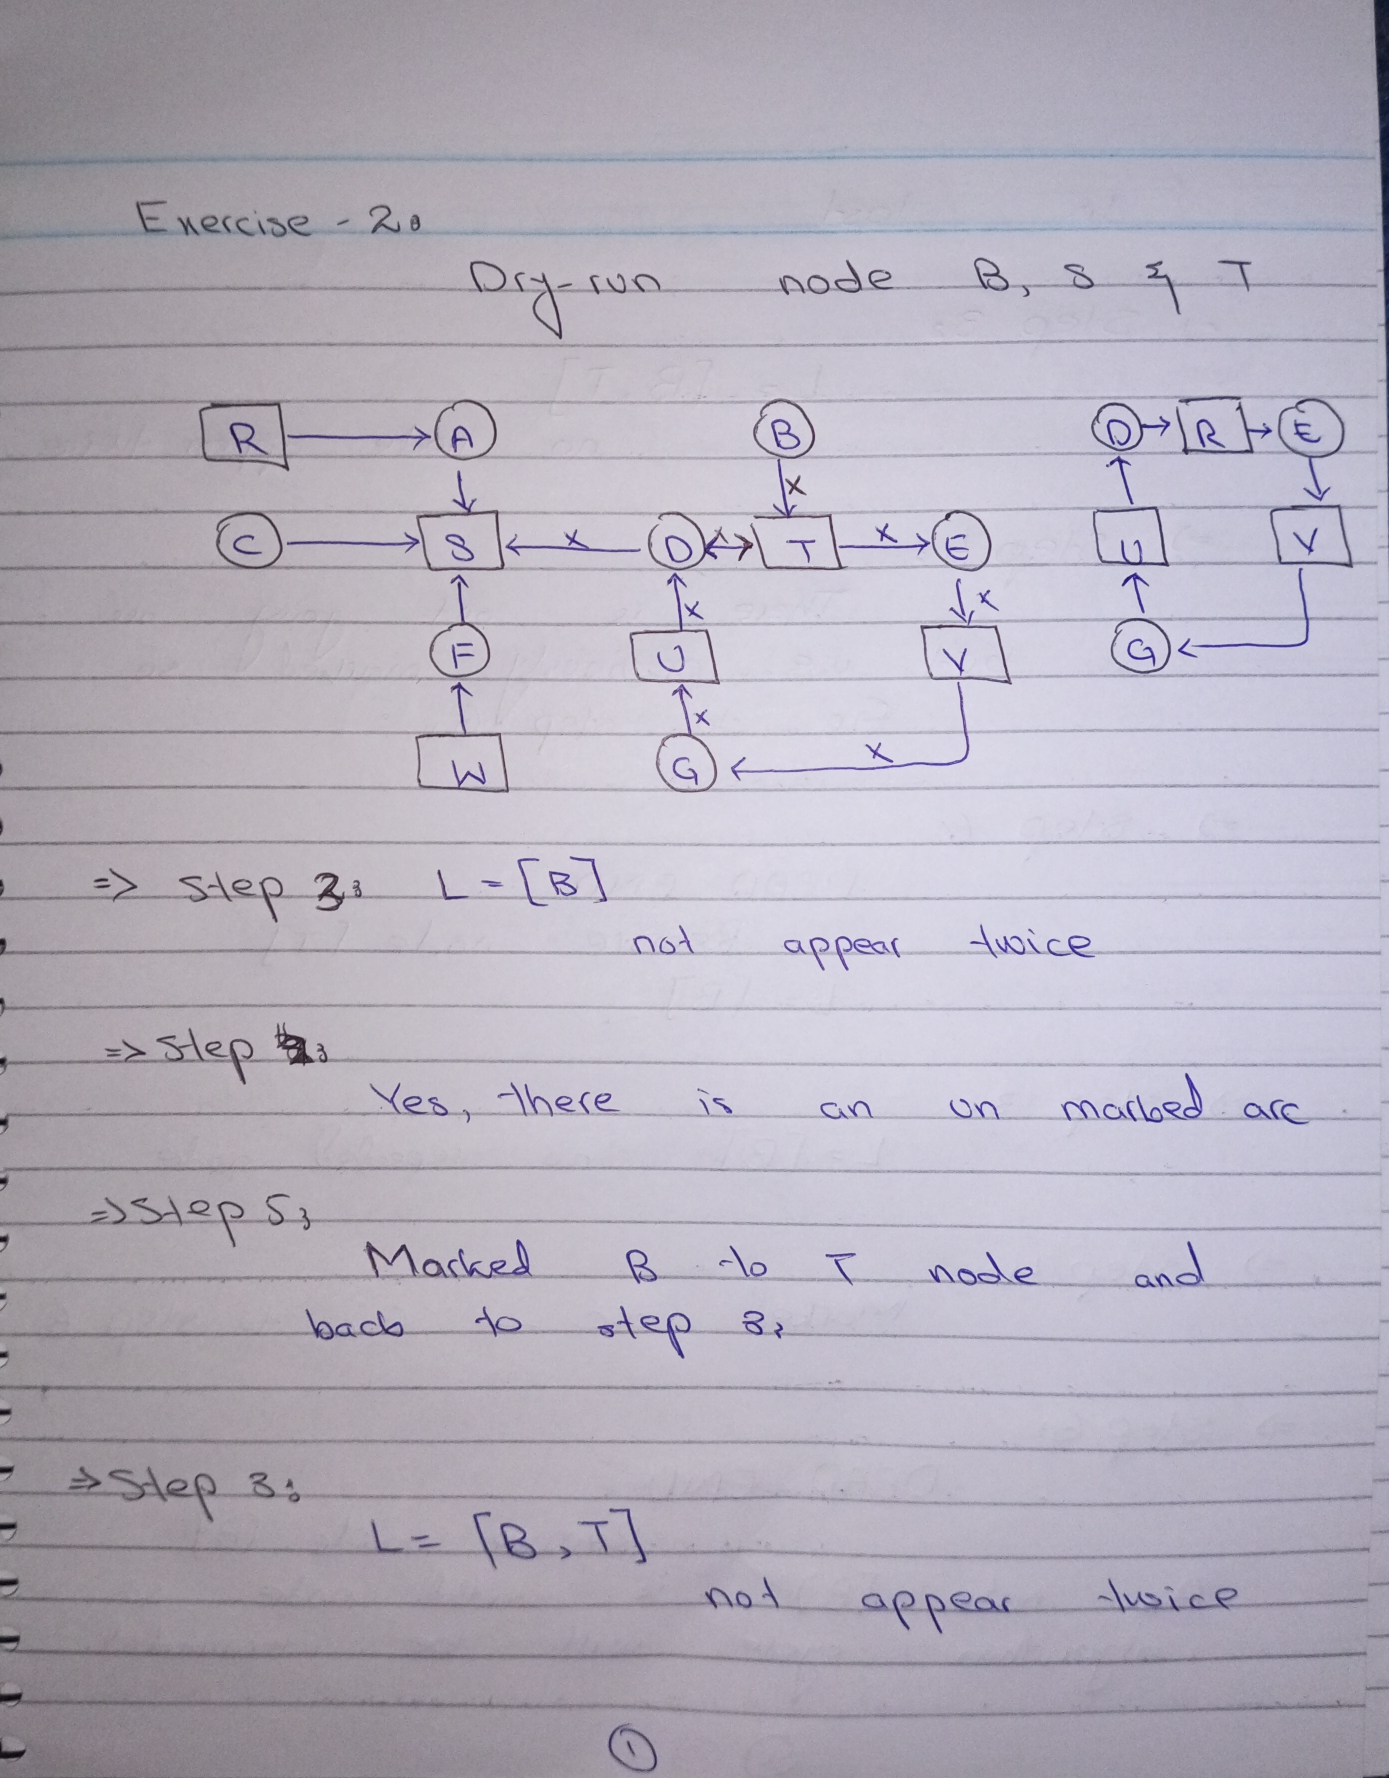 Exercise - 2:
Dry-run node B, S & T
R A B D R E
C S D T E U V
F U V G
W G
x x x x x x x
=> Step 3: L = [B]
not appear twice
=> Step
Yes, there is an un marked arc
=> Step 5:
Marked B to T node and
back to step 3:
=> Step 3:
L = [B, T]
not appear twice
1